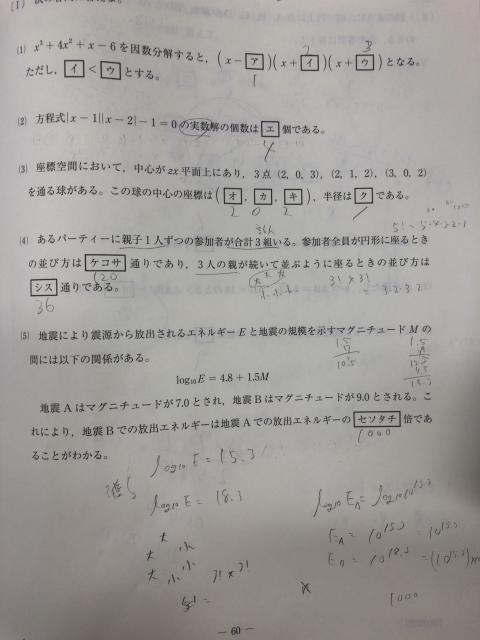 (1) x³+4x²+x−6を因数分解すると，(x−ア)(x+イ)(x+ウ)となる。
2 3
ただし，イ<ウとする。
1
(2) 方程式|x−1||x−2|−1=0の実数解の個数はエ個である。
4
(3) 座標空間において，中心がzx平面上にあり，3点(2, 0, 3)，(2, 1, 2)，(3, 0, 2)
を通る球がある。この球の中心の座標は(オ，カ，キ)，半径はクである。
2 0 2 1
5! = 5·4·3·2·1
(4) あるパーティーに親子1人ずつの参加者が合計3組いる。参加者全員が円形に座るとき
の並び方はケコサ通りであり，3人の親が続いて並ぶように座るときの並び方は
120
大 大 大
3! × 3!
シス通りである。
36
3·2·3·2
(5) 地震により震源から放出されるエネルギーEと地震の規模を示すマグニチュードMの
間には以下の関係がある。
1.5
7
10.5
1.5
15.3
log₁₀E=4.8+1.5M
地震Aはマグニチュードが7.0とされ，地震Bはマグニチュードが9.0とされる。こ
れにより，地震Bでの放出エネルギーは地震Aでの放出エネルギーのセソタチ倍であ
1000
ることがわかる。
log₁₀E = 15.3
log₁₀E = 18.3
大
大 小
大 小 小 3! × 3!
1000
― 60 ―